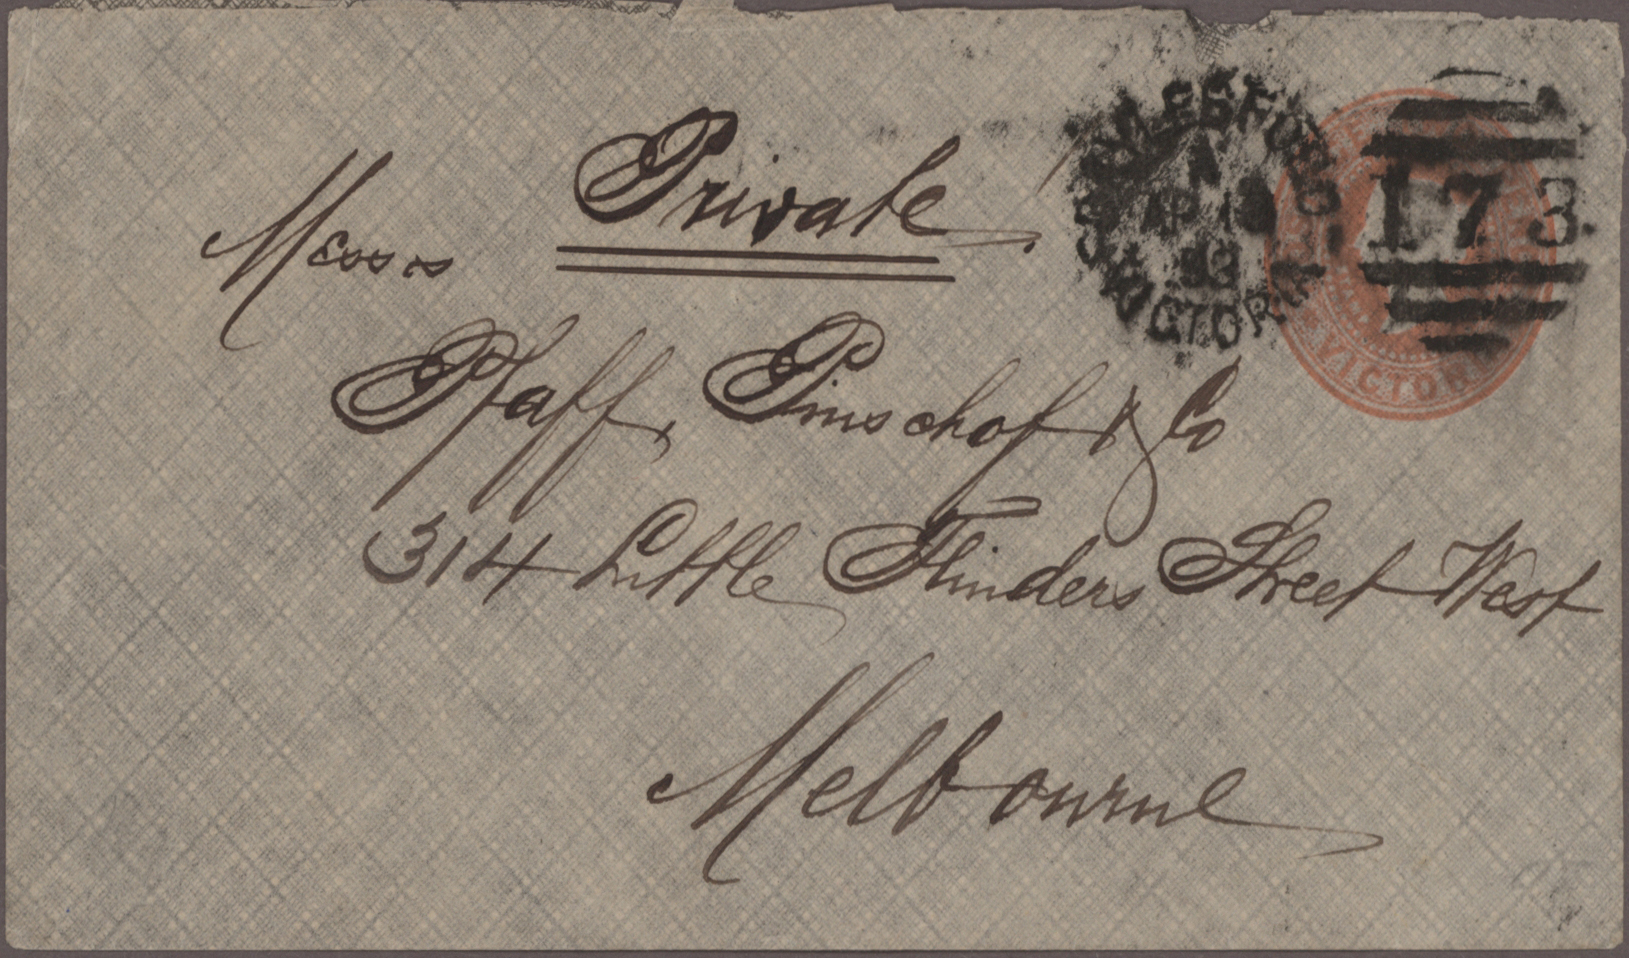 Private
Messrs
Pfaff, Pinschof & Co
314 Little Flinders Street West
Melbourne
A
AP
VICTORIA
173
VICTOR